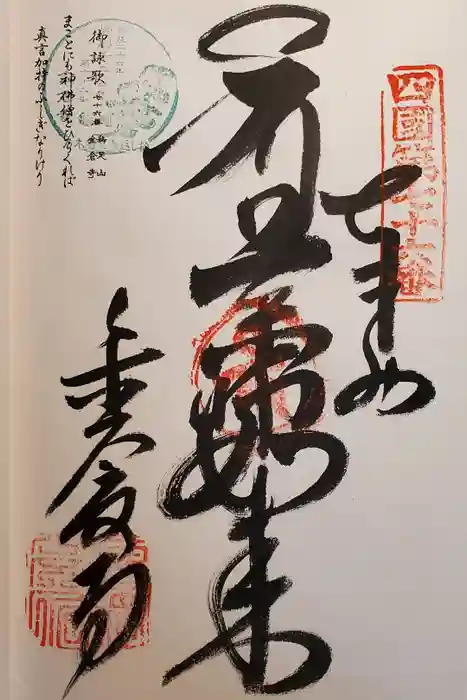 四國第七十六番
奉納
薬師如来
金倉寺
御詠歌
七十六番 鶏足山
金倉寺
まことにも神佛僧をひらくれば
真言加持のふしぎなりけり